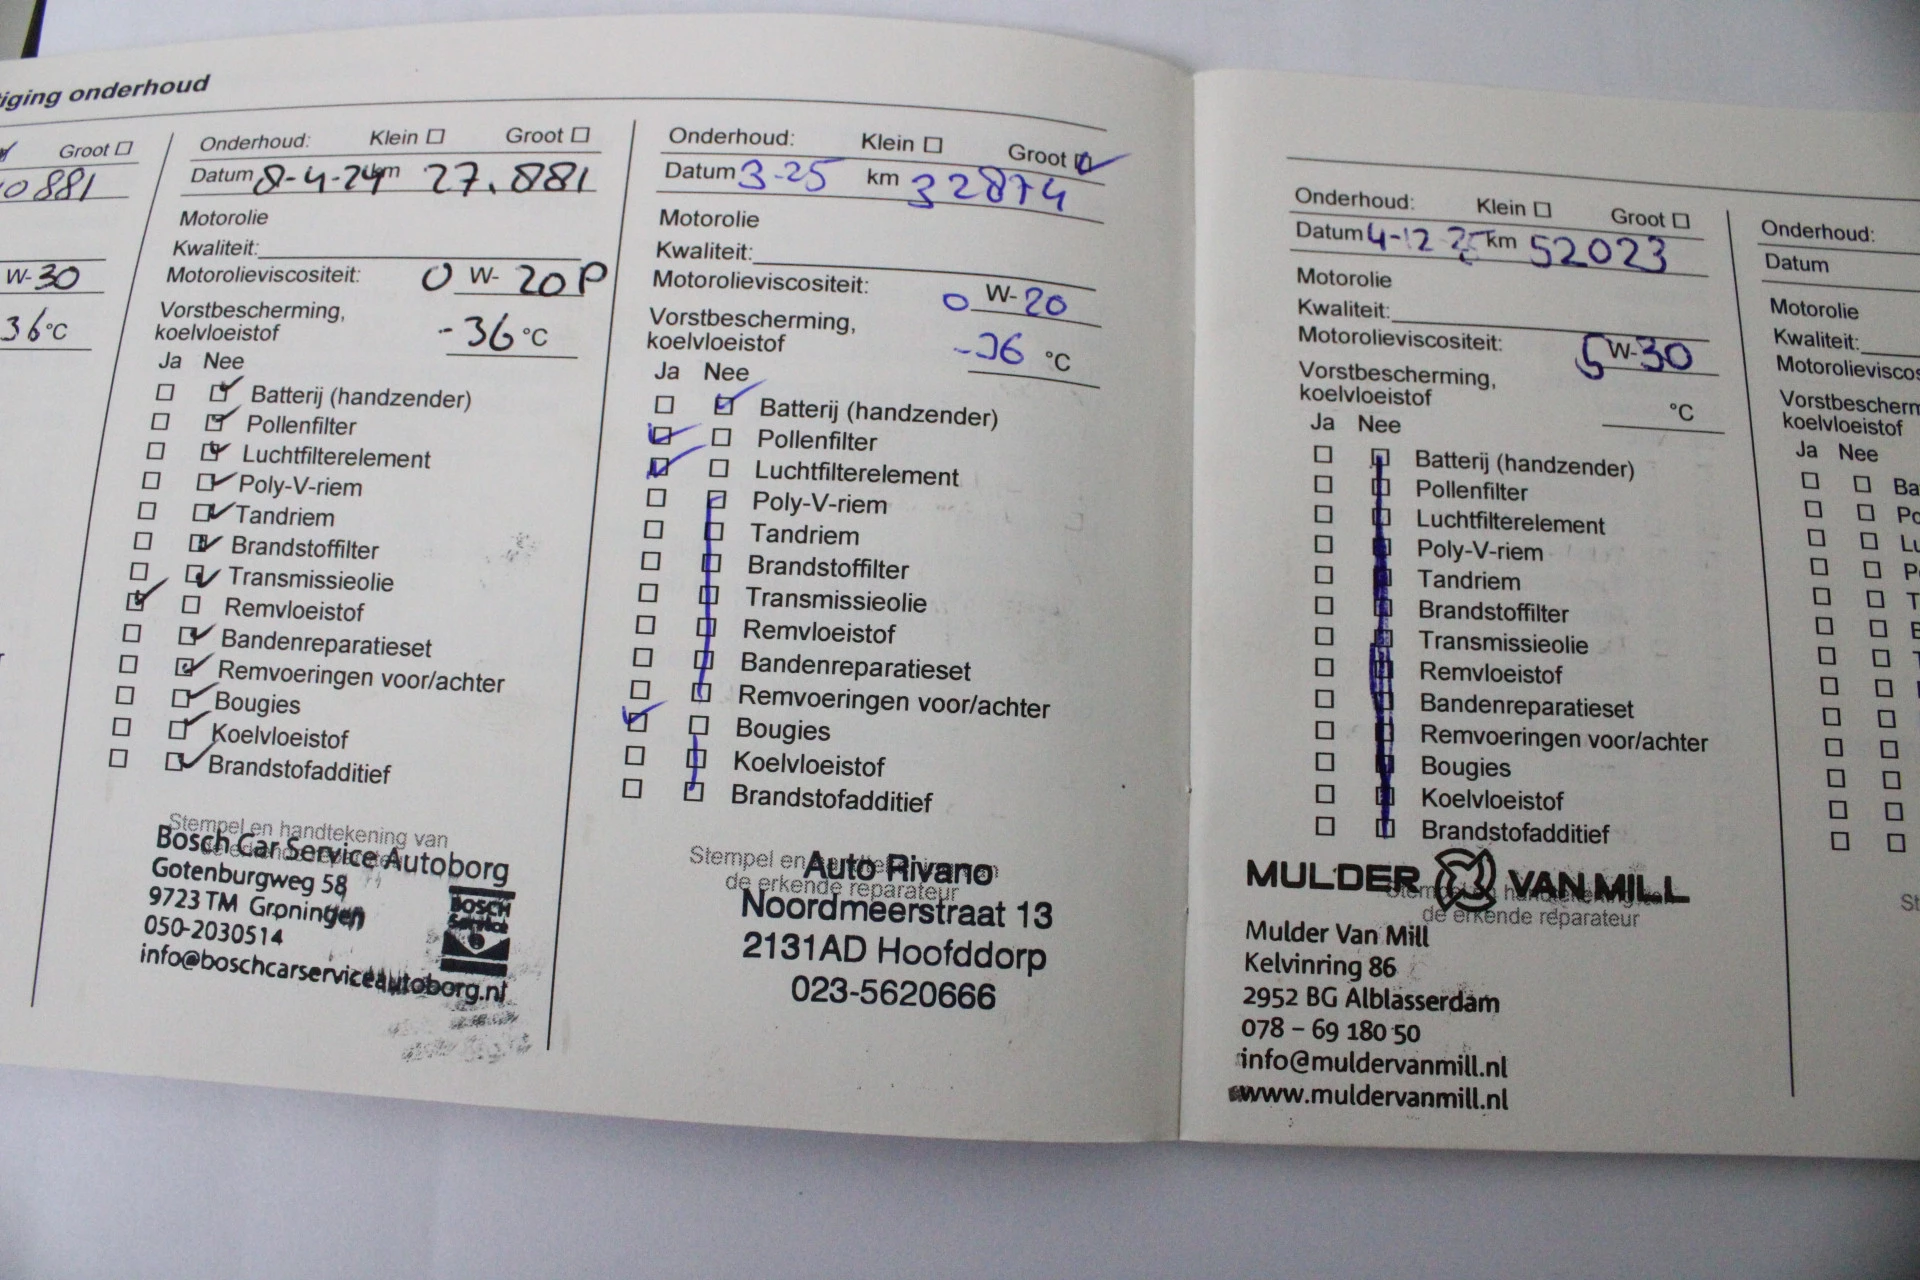 tiging onderhoud
Groot
10881
W-30
36°C
Onderhoud: Klein Groot
Datum 8-4-24 km 27.881
Motorolie
Kwaliteit:
Motorolieviscositeit: 0 W- 20P
Vorstbescherming,
koelvloeistof -36 °C
Ja Nee
Batterij (handzender)
Pollenfilter
Luchtfilterelement
Poly-V-riem
Tandriem
Brandstoffilter
Transmissieolie
Remvloeistof
Bandenreparatieset
Remvoeringen voor/achter
Bougies
Koelvloeistof
Brandstofadditief
Stempel en handtekening van
Bosch Car Service Autoborg
Gotenburgweg 58
9723 TM Groningen
050-2030514
info@boschcarserviceautoborg.nl
BOSCH
Service
Onderhoud: Klein Groot
Datum 3-25 km 32874
Motorolie
Kwaliteit:
Motorolieviscositeit: 0 W- 20
Vorstbescherming,
koelvloeistof -36 °C
Ja Nee
Batterij (handzender)
Pollenfilter
Luchtfilterelement
Poly-V-riem
Tandriem
Brandstoffilter
Transmissieolie
Remvloeistof
Bandenreparatieset
Remvoeringen voor/achter
Bougies
Koelvloeistof
Brandstofadditief
Stempel en
de erkende reparateur
Auto Rivano
Noordmeerstraat 13
2131AD Hoofddorp
023-5620666
Onderhoud: Klein Groot
Datum 4-12-25 km 52023
Motorolie
Kwaliteit:
Motorolieviscositeit: 5 W-30
Vorstbescherming,
koelvloeistof °C
Ja Nee
Batterij (handzender)
Pollenfilter
Luchtfilterelement
Poly-V-riem
Tandriem
Brandstoffilter
Transmissieolie
Remvloeistof
Bandenreparatieset
Remvoeringen voor/achter
Bougies
Koelvloeistof
Brandstofadditief
MULDER VAN MILL
de erkende reparateur
Mulder Van Mill
Kelvinring 86
2952 BG Alblasserdam
078 – 69 180 50
info@muldervanmill.nl
www.muldervanmill.nl
Onderhoud:
Datum
Motorolie
Kwaliteit:
Motorolieviscos
Vorstbescherm
koelvloeistof
Ja Nee
Ba
Po
Lu
P
T
B
T
St